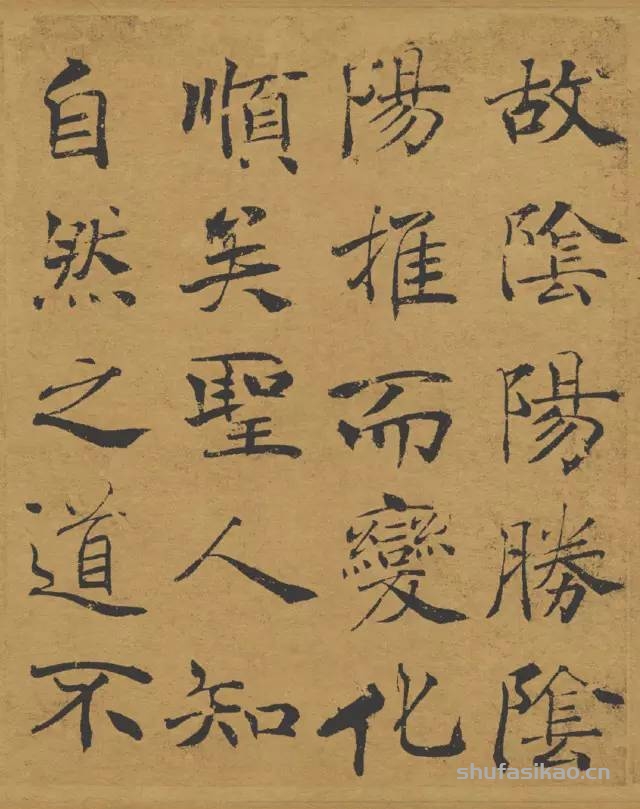 故陰陽勝陰
陽推而變化
順矣聖人知
自然之道不
shufasikao.cn